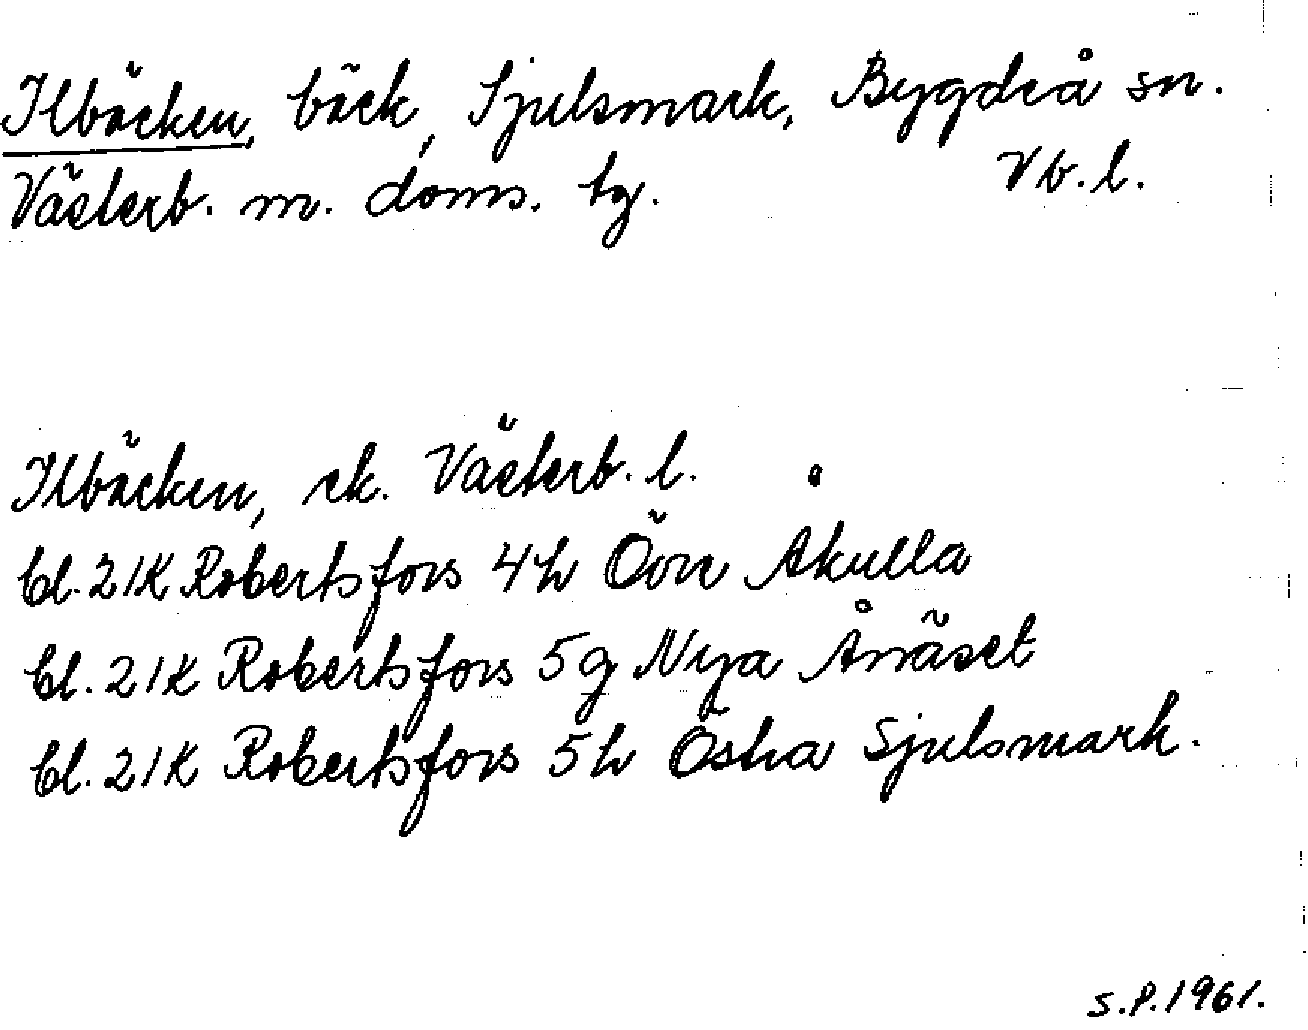 Ilbäcken, bäck, Sjulsmark, Bygdeå sn.
Västerb. m. doms. tg. Vb. l.
Ilbäcken, ek. Västerb. l.
bl. 21K Robertsfors 4h Övre Åkulla
bl. 21K Robertsfors 5g Nya Ånäset
bl. 21K Robertsfors 5h Östra Sjulsmark.
S.P. 1961.